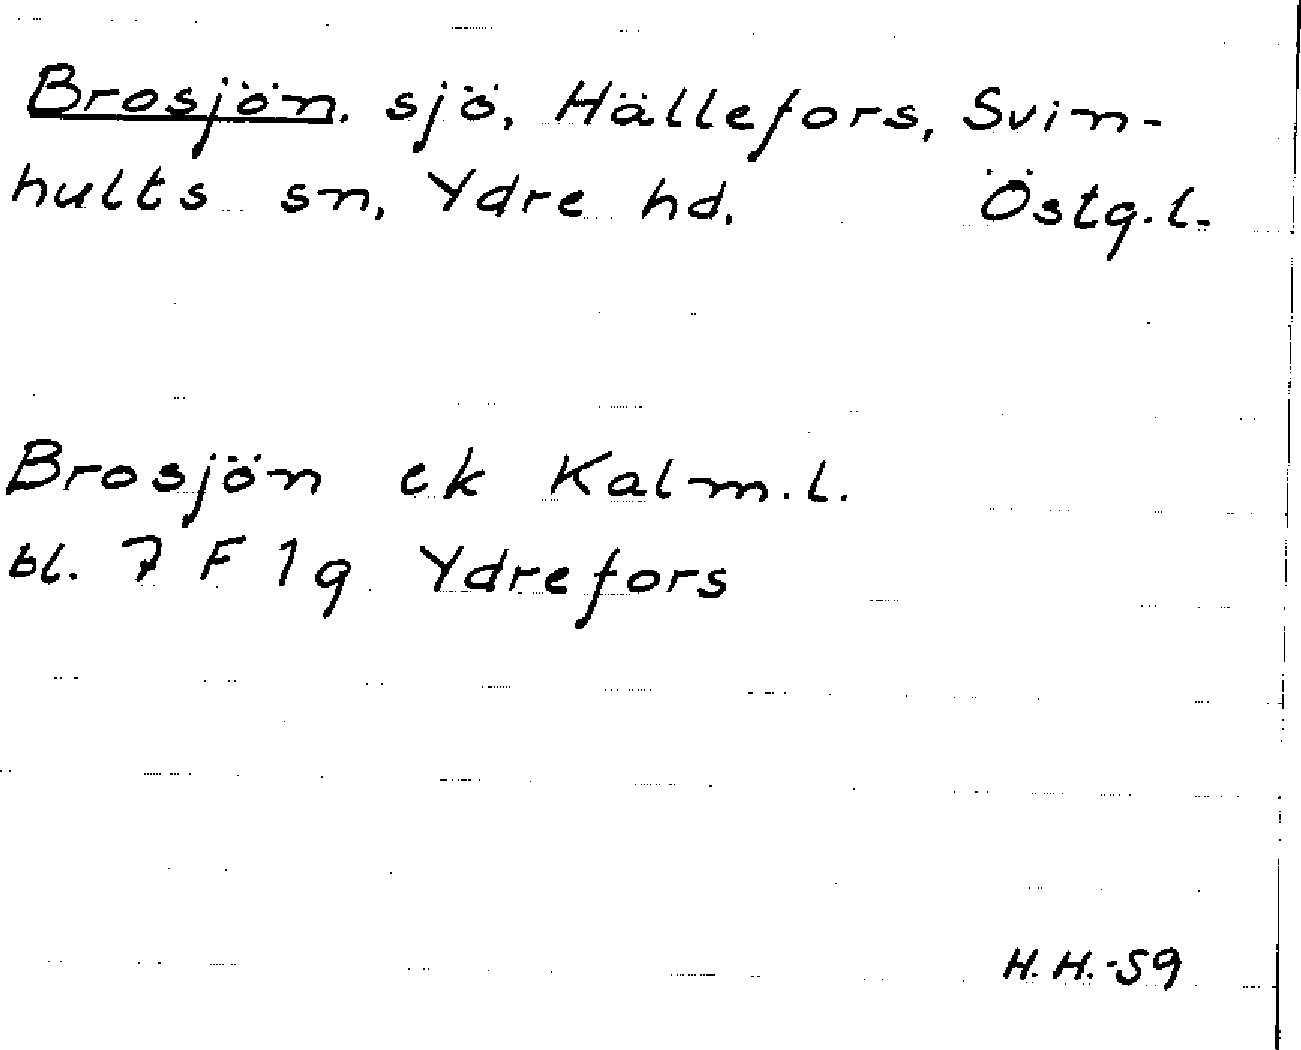 Brosjön, sjö, Hällefors, Svin-
hults sn, Ydre hd. Östg.l.
Brosjön ek Kalm.l.
bl. 7 F 1 g Ydrefors
H.H.-59